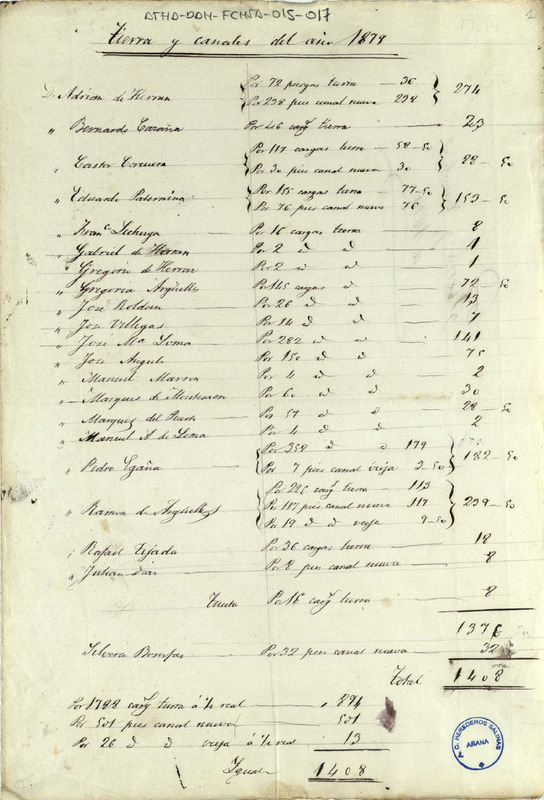 ATHA-DAH-FCHSA-015-017
1
Tierra y canales del año 1879
D. Adrian de Herran Por 72 cargas tierra 36
Por 238 pies canal nueva 238 274
" Bernardo Por 46 cargs tierra 23
" Castor Por 117 cargas tierra 58-50
Por 30 pies canal nueva 30 88-50
" Eduardo Paternina Por 155 cargas tierra 77-50
Por 76 pies canal nueva 76 153-50
" Franco Lechuga Por 16 cargas tierra 8
" Gabriel de Herran Por 2 d d 1
" Gregorio de Herran Por 2 d d 1
" Gregoria Argüelles Por 145 cargas d 72-50
" José Roldan Por 26 d d 13
" José Villegas Por 14 d d 7
" José Ma Loma Por 282 d d 141
" José Angulo Por 150 d d 75
" Manuel Marron Por 4 d d 2
" Marques de Montesacro Por 60 d d 30
" Marques del Puerto Por 57 d d 28-50
" Manuel A de Loma Por 4 d d 2
" Pedro Egaña Por 358 d d 179
Por 7 pies canal vieja 3-50 182-50
" Ramon de Por 226 cargs tierra 113
Por 117 pies canal nueva 117 239-50
Por 19 d d vieja 9-50
" Rafael Tejada Por 36 cargas tierra 18
" Julian Diaz Por 8 pies canal nueva 8
Por 16 cargs tierra 8
1376
Bonifaz Por 32 pies canal nueva 32
Total 1408
Por 1788 cargs tierra á ½ real 894
Por 501 pies canal nueva 501
Por 26 d d vieja á ½ real 13
Igual 1408
A. C. HEREDEROS SALINAS
AÑANA